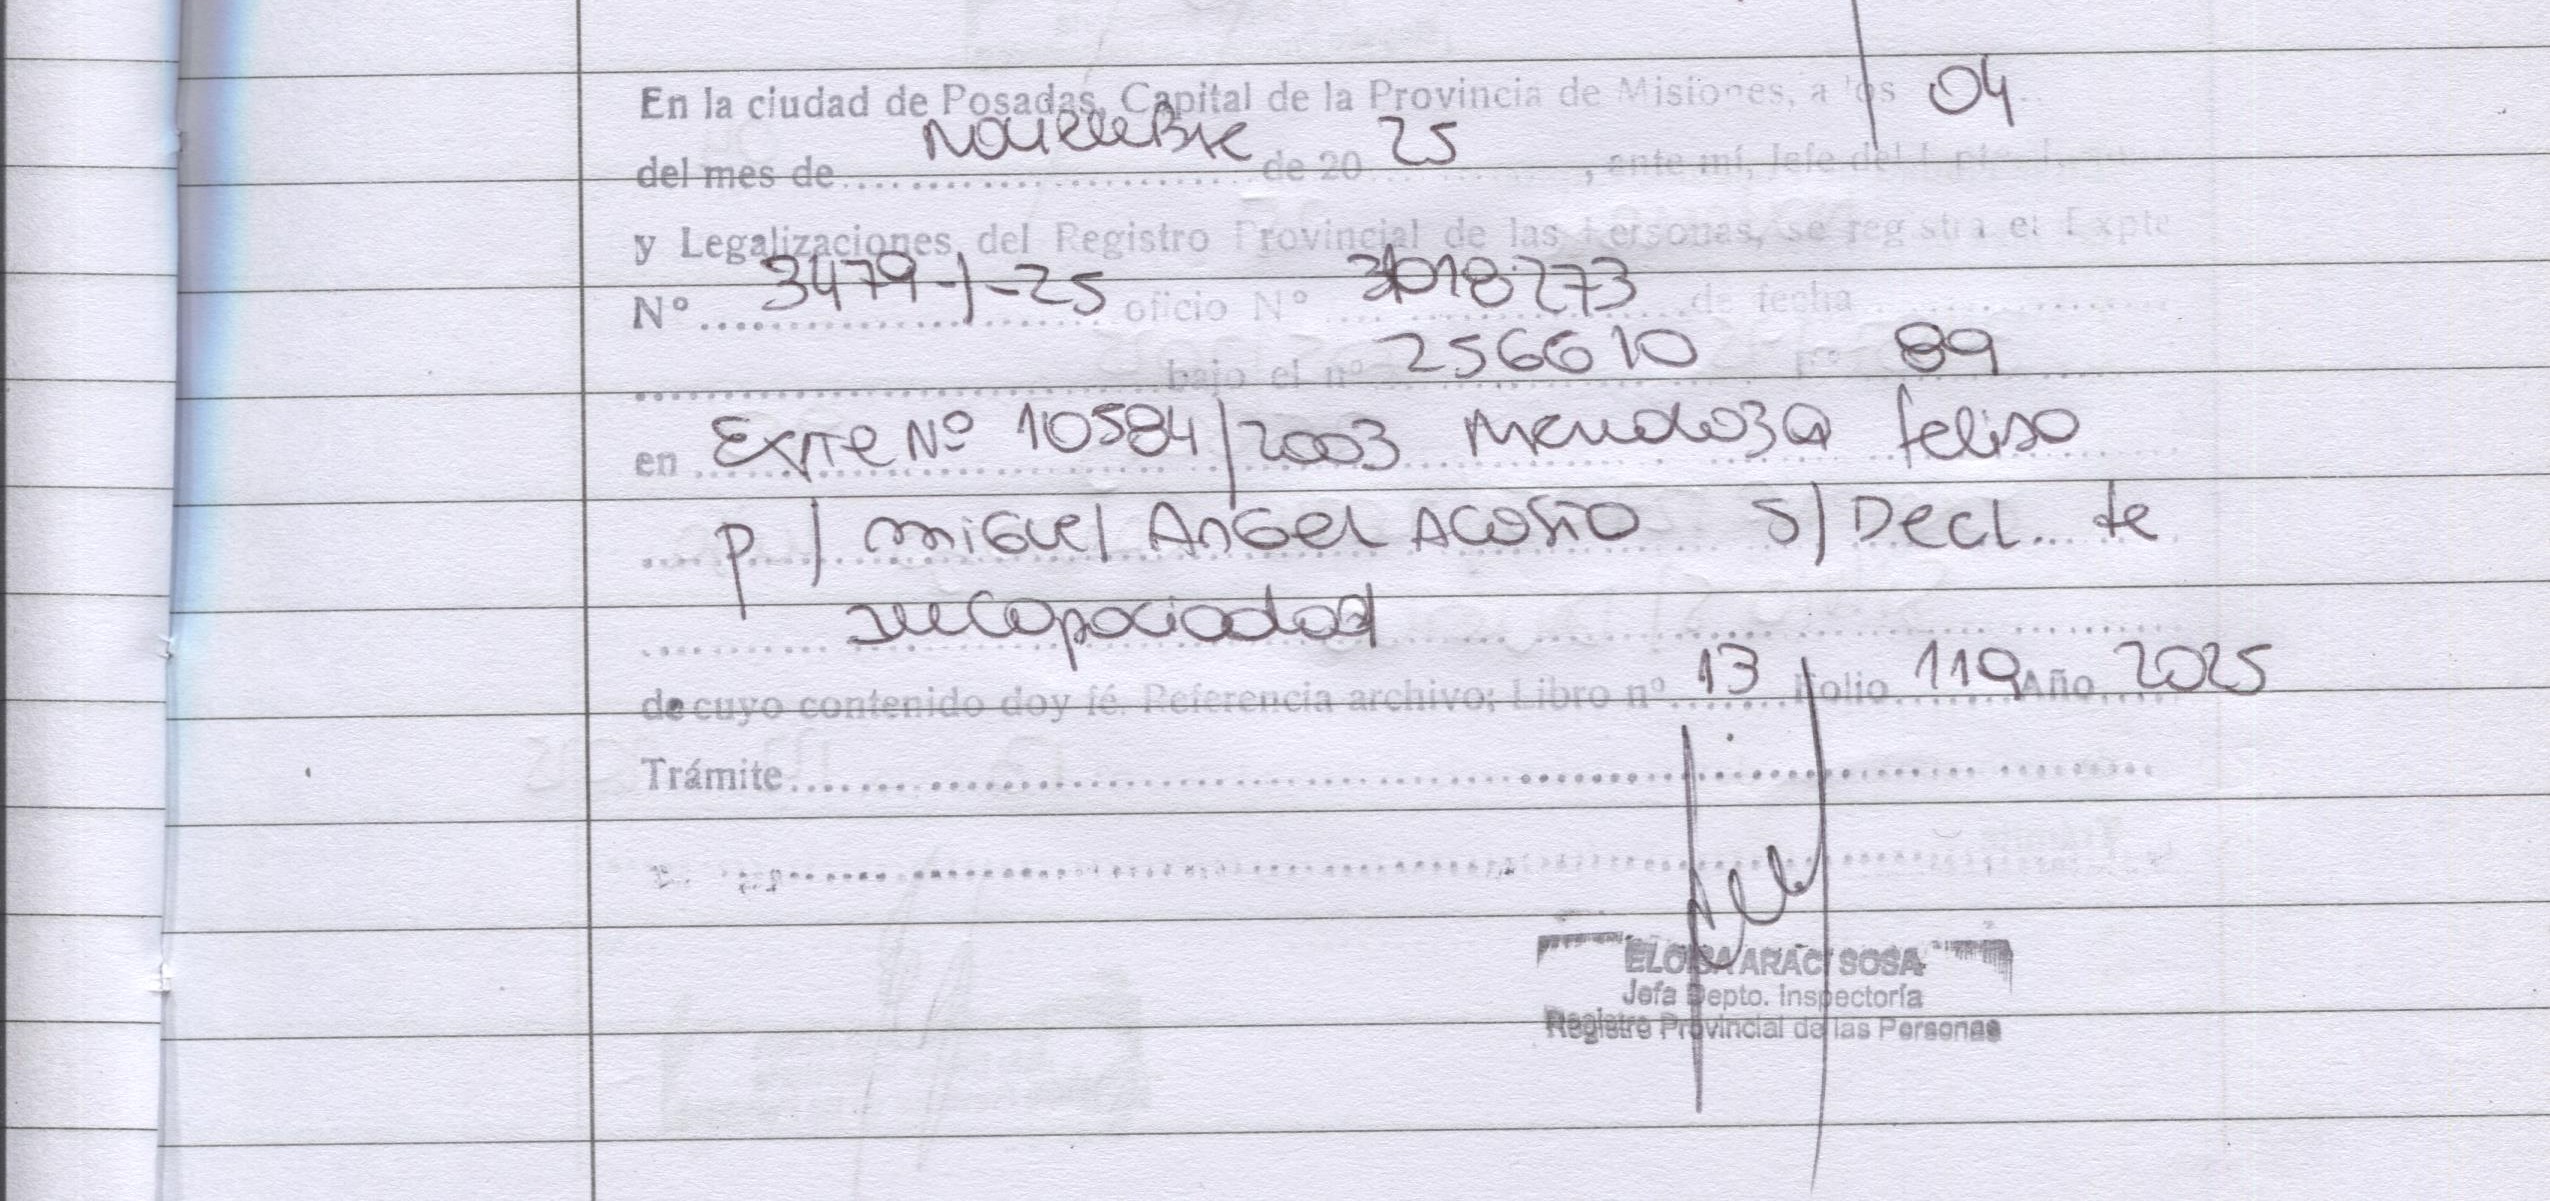 En la ciudad de Posadas, Capital de la Provincia de Misiones, a los 04
del mes de Noviembre de 20 25, ante mí, Jefe del Dpto.
y Legalizaciones, del Registro Provincial de las Personas, se registra el Expte
Nº 3479-J-25 oficio Nº 3018273 de fecha
bajo el nº 256610 Fº 89
en Expte Nº 10584/2003 Mendoza Felisa
p/ Miguel Angel Acosta s/ Decl. de
Incapacidad
de cuyo contenido doy fé. Referencia archivo: Libro nº 13 Folio 119 Año 2025
Trámite
ELOISA ARACI SOSA
Jefa Depto. Inspectoría
Registro Provincial de las Personas